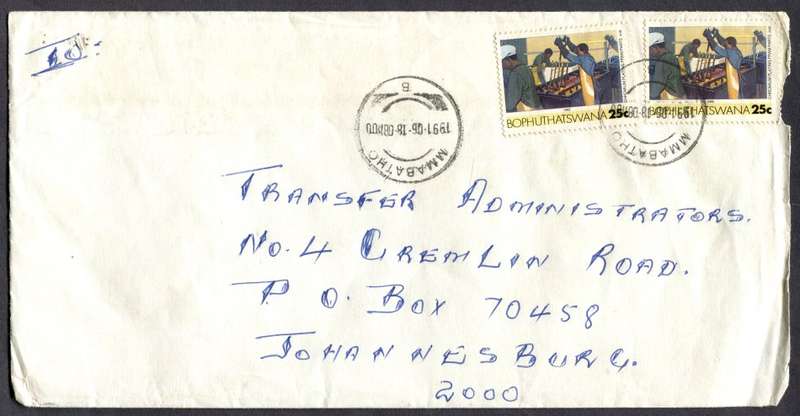 TO:-
BOPHUTHATSWANA 25c
BOPHUTHATSWANA 25c
MMABATHO
1991-06-18
B
MMABATHO
1991-06-18
TRANSFER ADMINISTRATORS.
No. 4 GREMLIN ROAD.
P O. BOX 70458
JOHANNESBURG.
2000